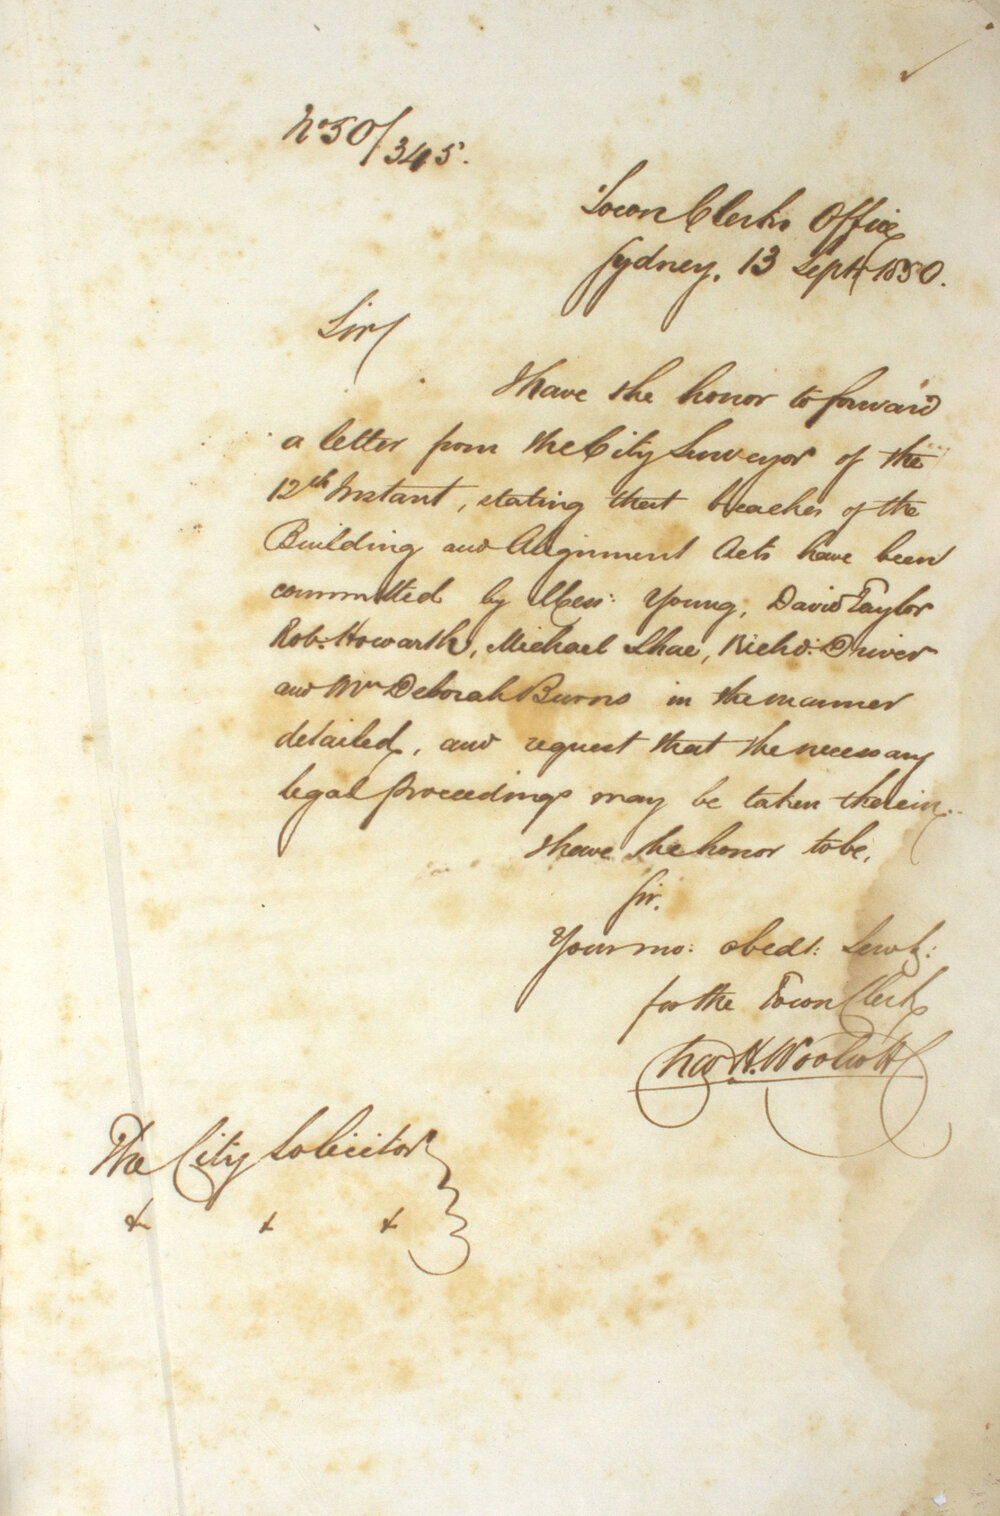 No 50/345.
Town Clerks Office
Sydney, 13 Sept 1850.
Sir/
I have the honor to forward
a letter from the City Surveyor of the
12th Instant, stating that breaches of the
Building and Alignment Acts have been
committed by Mess: Young, David Taylor
Rob: Howarth, Michael Shae, Richd: Driver
and Mrs Deborah Burns in the manner
detailed, and request that the necessary
legal proceedings may be taken therein.
I have the honor to be,
Sir.
Your mo: obedt: Servt:
for the Town Clerk
Chas H. Woolcott
The City Solicitor